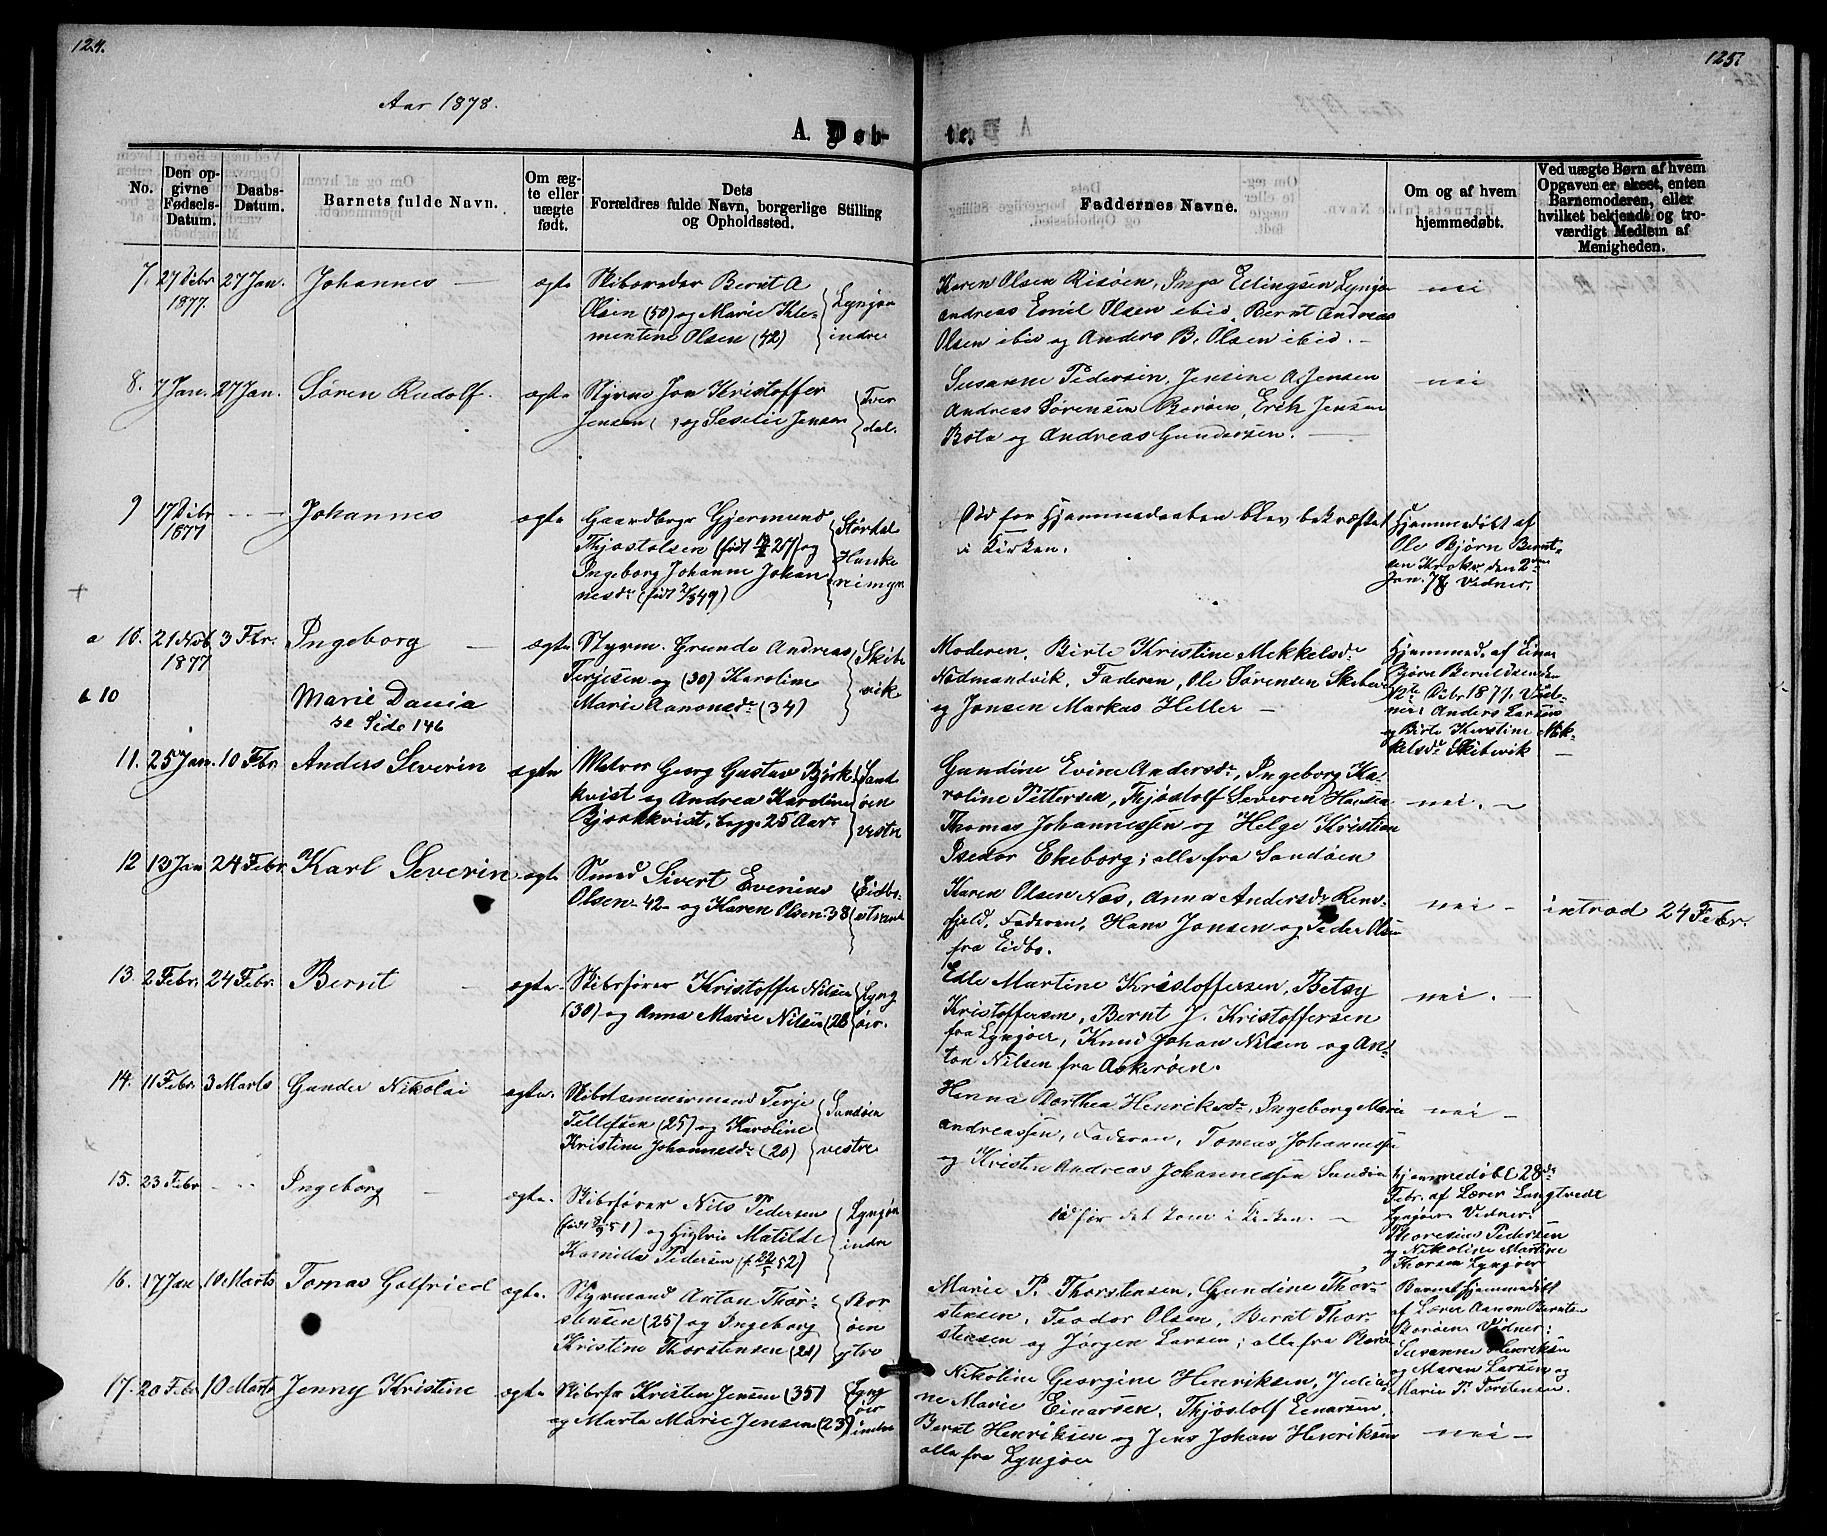 124.
125.
Aar 1878.
A. Døb-
te.
No.
Den op-
givne
Fødsels-
Datum.
Daabs-
Datum.
Barnets fulde Navn.
Om æg-
te eller
uægte
født.
Dets
Forældres fulde Navn, borgerlige Stilling
og Opholdssted.
Faddernes Navne.
Om og af hvem
hjemmedøbt.
Ved uægte Børn af hvem
Opgaven er skeet, enten
Barnemoderen, eller
hvilket bekjendt og tro-
værdigt Medlem af
Menigheden.
7. 27 Debr 1877. 27 Jan. Johannes ægte
Skibsreder Bernt A
Olsen (50) og Marie Kle-
mentine Olsen (42)
Lyngør
indre
Karen Olsen Risøen, Inga Ellingsen Lyngør
Andreas Emil Olsen ibid, Bernt Andreas
Olsen ibid og Anders B. Olsen ibid. -
nei
8. 7 Jan. 27 Jan. Søren Rudolf. ægte
Styrm Jon Kristoffer
Jensen ( ) og Seselie Jensen
Tver
dal.
Susanne Pedersen, Jensine A. Jensen
Andreas Sørensen Borøen, Erik Jensen
Bota og Andreas Gundersen.
nei
9 17 Debr 1877 - - - Johannes ægte
Gaardbrgr Gjermund
Thjostolsen (født 27) og
Ingeborg Johanne Johan
nesdr (født 2/3 49)
Størdal
Haske
reimyr
Død før Hjemmedaaben blev bekræftet
i Kirken.
Hjemmedøbt af
Ole Bjørn Bernt-
sen Krokv. den 2den
Jan. 78 Vidner.
a 10. 21 Nob 1877 3 Fbr. Ingeborg ægte
Styrm. Grunde Andreas
Terjesen og (30) Karoline
Marie Aanonsdr (34)
Skibs
vik
Moderen, Birte Kristine Mekkelsdr
Nødmandsvik, Faderen, Ole Sørensen Skibsv
og Jensen Markus Heller -
Hjemmed. af
Bjørn Beruldsen den
Debr. 1877. Vid-
ner: Anders Larsen
og Birte Kirstine Mik-
kelsdr Skibsvik
b 10
Marie Dania
se Side 146
11. 25 Jan. 10 Fbr. Anders Severin ægte
Matros Georg Gustav Bjørk-
kvist og Andrea Karoline
Bjørkkvist, begge 25 Aar.
Sand
øen
vestre
Gundine Evine Andersdr, Ingeborg Ka-
roline Pettersen, Thjødolf Severen Hansen
Thomas Johannessen og Helge Kristian
Isedor Ekeborg; alle fra Sandøen
nei. -
12 13 Jan 24 Febr. Karl Severin ægte
Smed Sivert Evenius
Olsen 42 - og Karen Olsen 38
Eidbo-
strand
Karen Olsen Næs, Anna Andersdr Rens-
fjeld, Faderen, Hans Jensen og Peder Olsen
fra Eidbo.
nei -
introd 24 Febr.
13. 2 Febr. 24 Febr. Bernt ægte.
Skibsfører Kristoffer Nilsen
(30) og Anna Marie Nilsen (26
Lyng
øer.
Edle Martine Kristoffersen, Betsy
Kristoffersen, Bernt J. Kristoffersen
fra Lyngøer, Knud Johan Nilsen og An-
ton Nilsen fra Askerøen.
nei. -
14. 11 Febr. 3 Marts Gunder Nikolai ægte.
Skibstømmermand Terje
Tellefsen (25) og Karoline
Kristine Johannesdr (20)
Sandøen
vestre
Henna Dorthea Henriksdr, Ingeborg Marie
Andreassen, Faderen, Tomas Johannessen
og Kristen Andreas Johannessen Sandøen
nei -
15. 23 Febr - - - Ingeborg - ægte.
Skibsfører Nils Pedersen
(født 51) og Marie Matilde
Kamilla Pedersen (f. 22/5 52)
Lyngøer
indre
før det kom i Kirken. -
hjemmedøbt 28de
Febr. af Lærer Langtvedt
Lyngøer. Vidner:
Thoresine Pedersen
og Nikoline Martine
Thorsen Lyngøer
16. 17 Jan 10 Marts Tomas Gotfried ægte.
Styrmand Anton Thor-
stensen (25) og Ingeborg
Kristine Thorstensen (24)
Bor
øen
ytre
Marie P. Thorstensen, Gundine Thor-
stensen, Teodor Olsen, Bernt Thor-
stensen og Jørgen Larsen; alle fra Borøen
Barnet hjemmedøbt
af Lærer Aanon Berntsen
Borøen. Vidner:
Susanne Henriksen
og Maren Larsen og
Marie P. Torstensen.
17. 20 Febr 10 Marts Jenny Kristine ægte
Skibsfr Kristen Jensen (35)
og Marta Marie Jensen (23)
Lyng
øer
indre
Nikoline Georgine Henriksen, Julian-
ne Marie Einarsen, Thjøstolf Einarsen,
Bernt Henriksen og Jens Johan Henriksen
alle fra Lyngøer
nei -